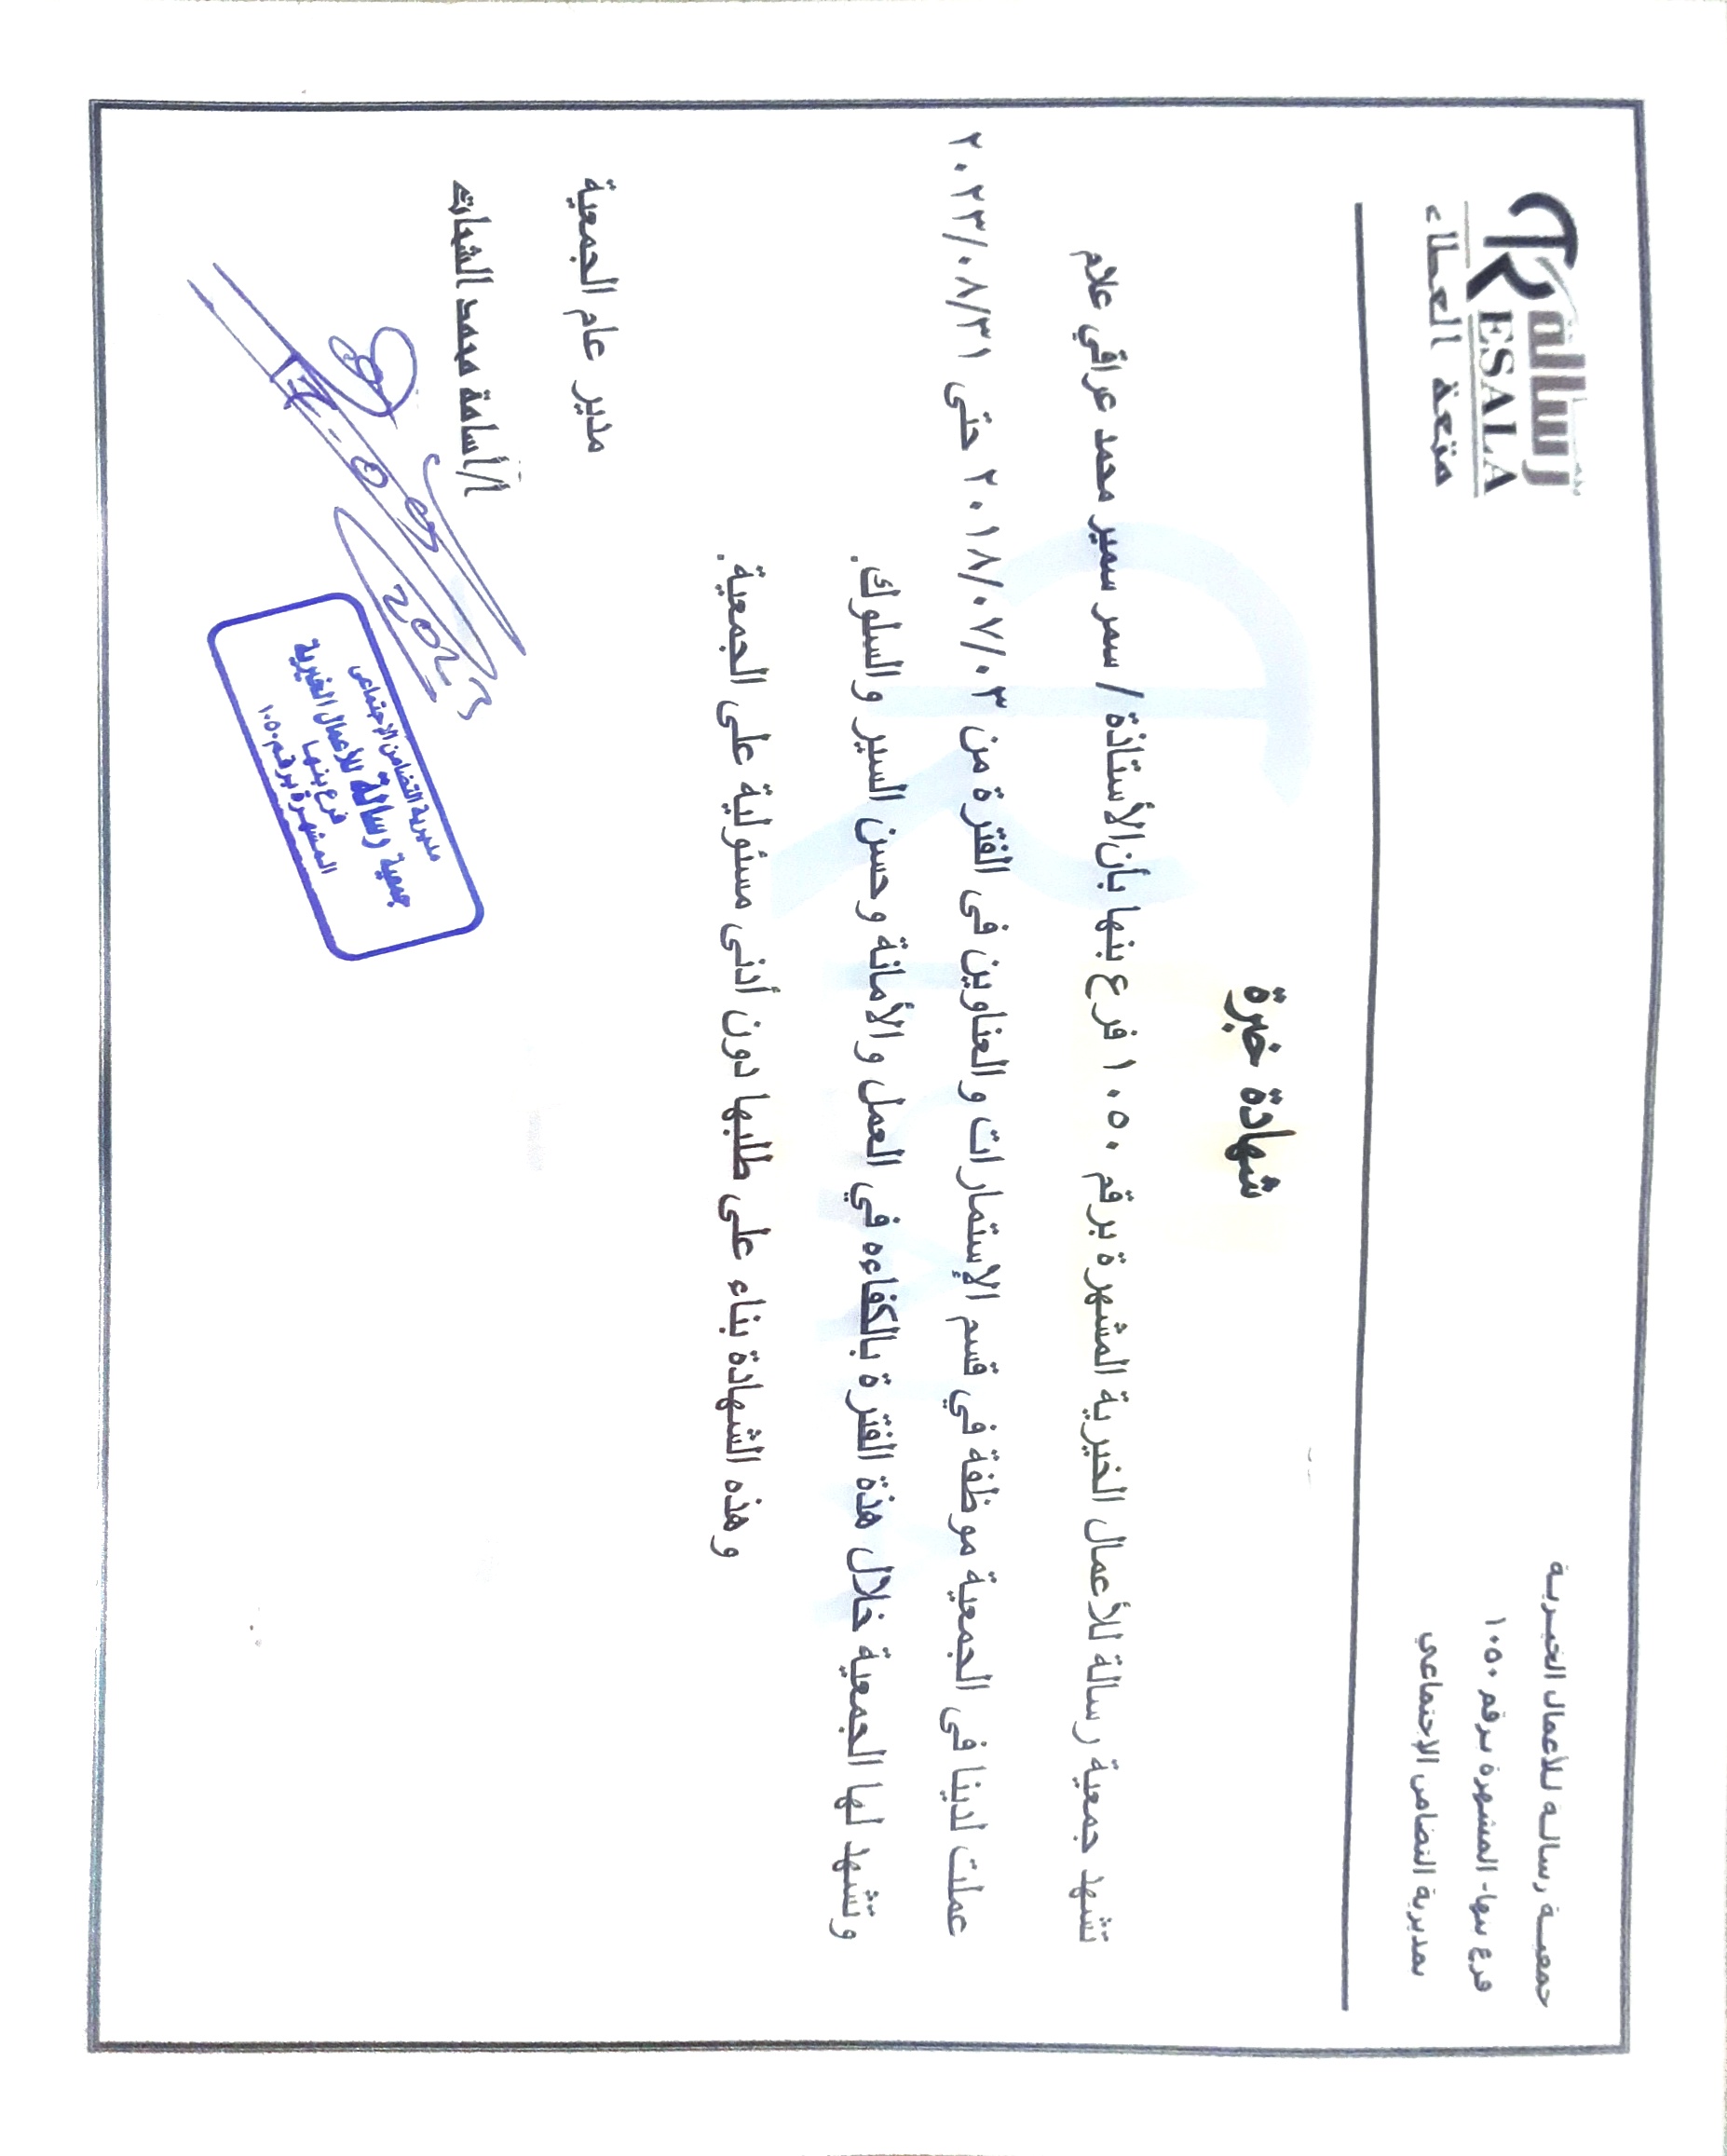 جمعية رسالة للأعمال الخيرية
فرع بنها- المشهرة برقم ١٠٥٠
بمديرية التضامن الإجتماعي
رسالة
RESALA
متعة العطاء
شهادة خبرة
تشهد جمعية رسالة للأعمال الخيرية المشهرة برقم ١٠٥٠ فرع بنها بأن الأستاذة / سمر سمير محمد عراقي علام
عملت لدينا فى الجمعية موظفة في قسم الإستمارات والعناوين فى الفترة من ٢٠١٨/٠٧/٠٣ حتى ٢٠٢٣/٠٨/٣١
وتشهد لها الجمعية خلال هذة الفترة بالكفاءه في العمل والأمانة وحسن السير والسلوك.
وهذه الشهادة بناء على طلبها دون أدنى مسئولية على الجمعية.
مدير عام الجمعية
أ/أسامة محمد الشهات
مديرية التضامن الإجتماعى
جمعية رسالة للأعمال الخيرية
فرع بنها
المشهرة برقم ١٠٥٠